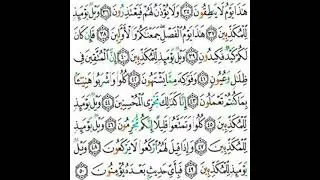 هَٰذَا يَوْمُ لَا يَنطِقُونَ ٣٥ وَلَا يُؤْذَنُ لَهُمْ فَيَعْتَذِرُونَ ٣٦ وَيْلٌ يَوْمَئِذٍ
لِّلْمُكَذِّبِينَ ٣٧ هَٰذَا يَوْمُ ٱلْفَصْلِ جَمَعْنَٰكُمْ وَٱلْأَوَّلِينَ ٣٨ فَإِن كَانَ
لَكُمْ كَيْدٌ فَكِيدُونِ ٣٩ وَيْلٌ يَوْمَئِذٍ لِّلْمُكَذِّبِينَ ٤٠ إِنَّ ٱلْمُتَّقِينَ فِى
ظِلَٰلٍ وَعُيُونٍ ٤١ وَفَوَٰكِهَ مِمَّا يَشْتَهُونَ ٤٢ كُلُوا۟ وَٱشْرَبُوا۟ هَنِيٓـًٔۢا
بِمَا كُنتُمْ تَعْمَلُونَ ٤٣ إِنَّا كَذَٰلِكَ نَجْزِى ٱلْمُحْسِنِينَ ٤٤ وَيْلٌ يَوْمَئِذٍ
لِّلْمُكَذِّبِينَ ٤٥ كُلُوا۟ وَتَمَتَّعُوا۟ قَلِيلًا إِنَّكُم مُّجْرِمُونَ ٤٦ وَيْلٌ يَوْمَئِذٍ
لِّلْمُكَذِّبِينَ ٤٧ وَإِذَا قِيلَ لَهُمُ ٱرْكَعُوا۟ لَا يَرْكَعُونَ ٤٨ وَيْلٌ
يَوْمَئِذٍ لِّلْمُكَذِّبِينَ ٤٩ فَبِأَىِّ حَدِيثٍۭ بَعْدَهُۥ يُؤْمِنُونَ ٥٠